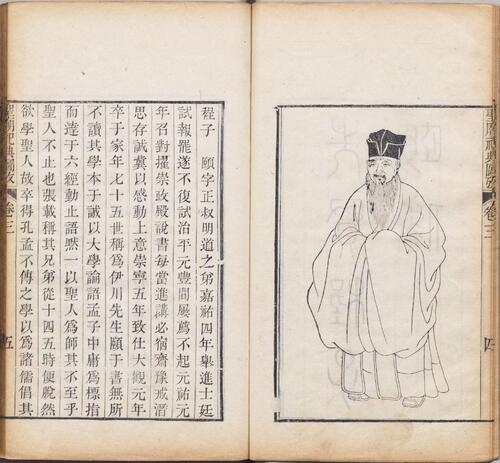 聖廟祀典圖攷 卷三
程子 頤字正叔明道之弟嘉祐四年舉進士廷
試報罷遂不復試治平元豐間屢薦不起元祐元
年召對擢崇政殿說書每當進講必宿齋豫戒潛
思存誠冀以感動上意崇寧五年致仕大觀元年
卒于家年七十五世稱爲伊川先生頤于書無所
不讀其學本于誠以大學論語孟子中庸爲標指
而達于六經動止語默一以聖人爲師其不至乎
聖人不止也張載稱其兄弟從十四五時便脫然
欲學聖人故卒得孔孟不傳之學以爲諸儒倡其
聖廟祀典圖攷 卷三 五